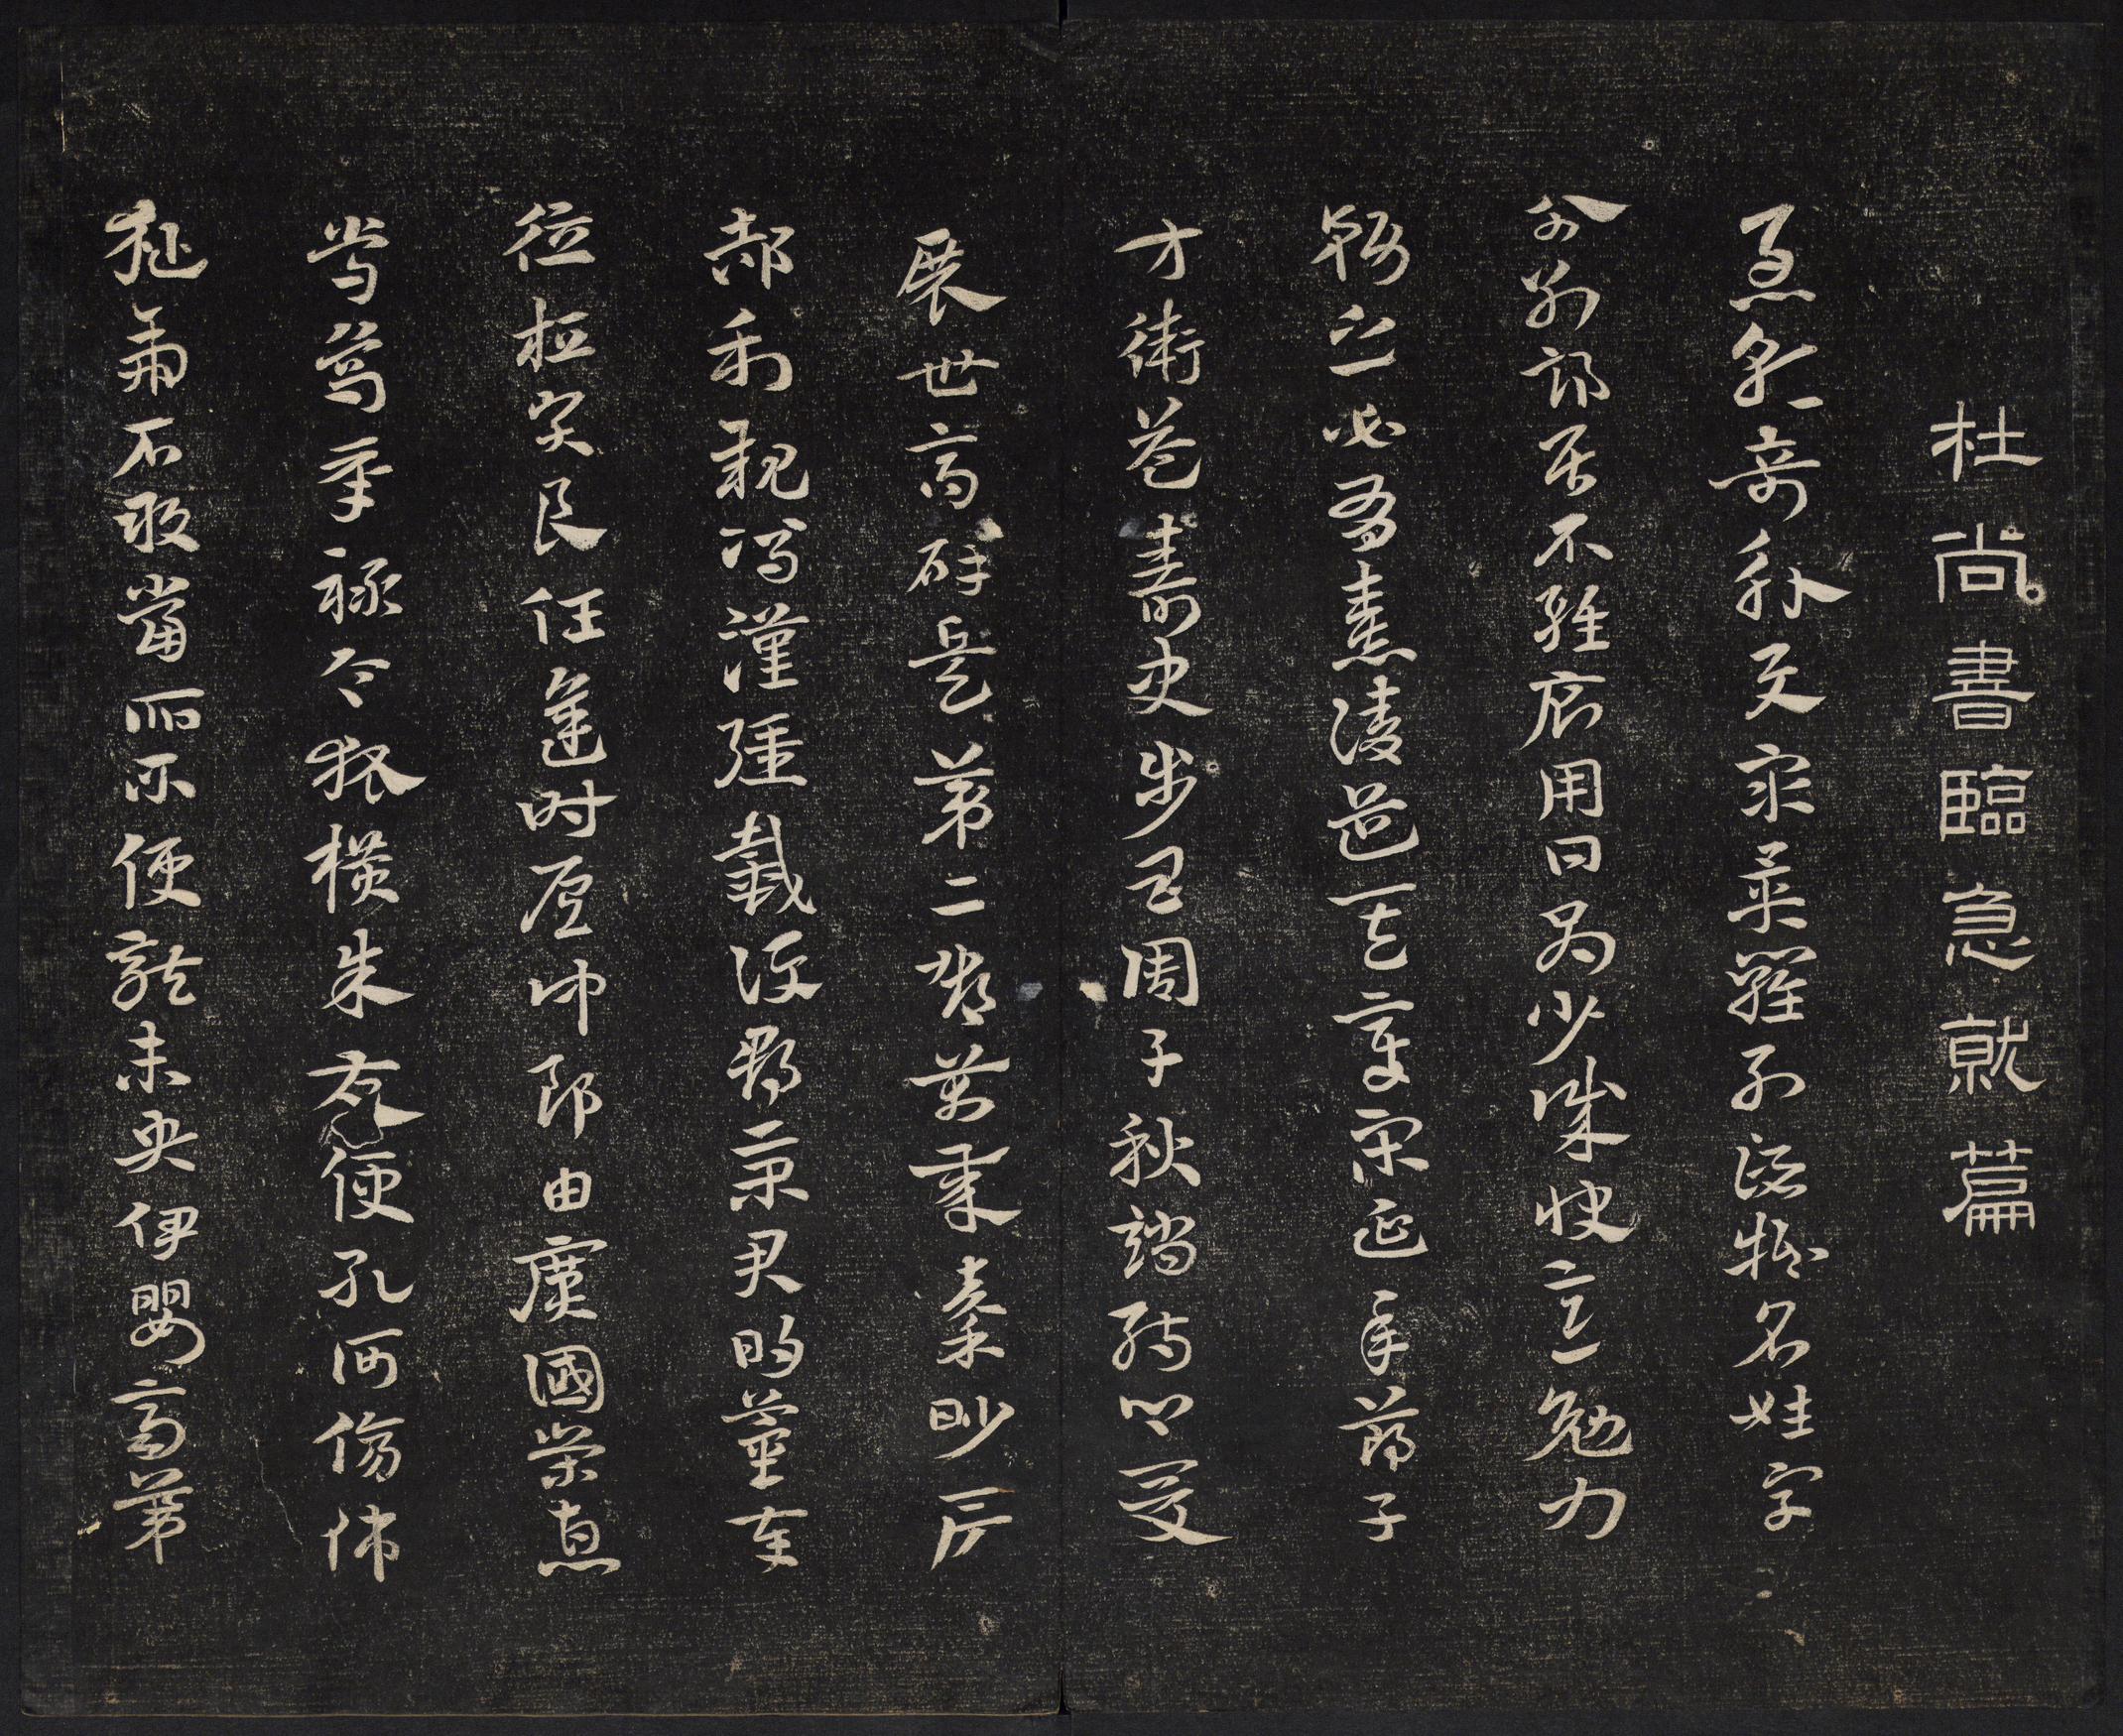 杜尚書臨急就篇
急就奇觚與衆異羅列諸物名姓字
分別部居不雜廁用日約少誠快意勉力
務之必有憙請道其章宋延年鄭子
方衛益壽史步昌周千秋趙孺卿爰
展世高辟兵第二鄧萬歲秦眇房
郝利親馮漢彊戴護郡景君明董奉
德桓賢良任逢時侯仲郎由廣國榮惠
常烏承祿令狐橫朱交便孔何傷師
猛虎石敢當所不侵龍未央伊嬰齊翟